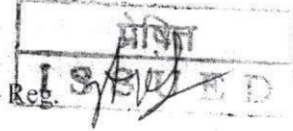 प्रेषित
ISSUED
Reg.